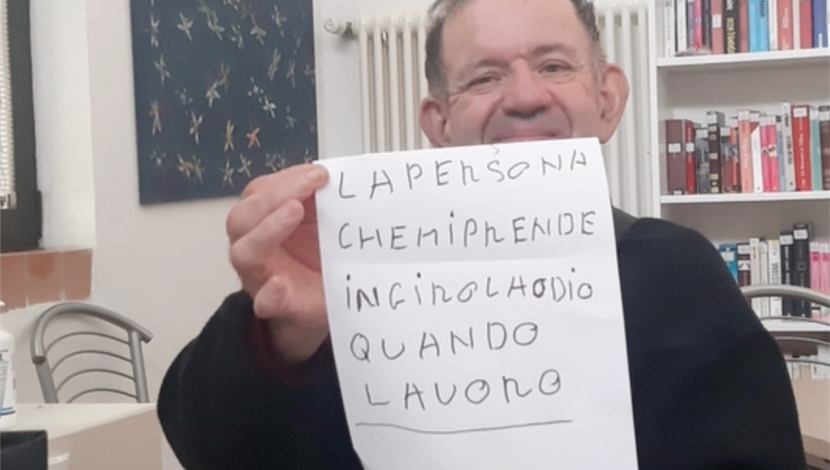 LAPERSONA
CHEMiPRENDE
iNGiROLHODiO
QUANDO
LAVORO